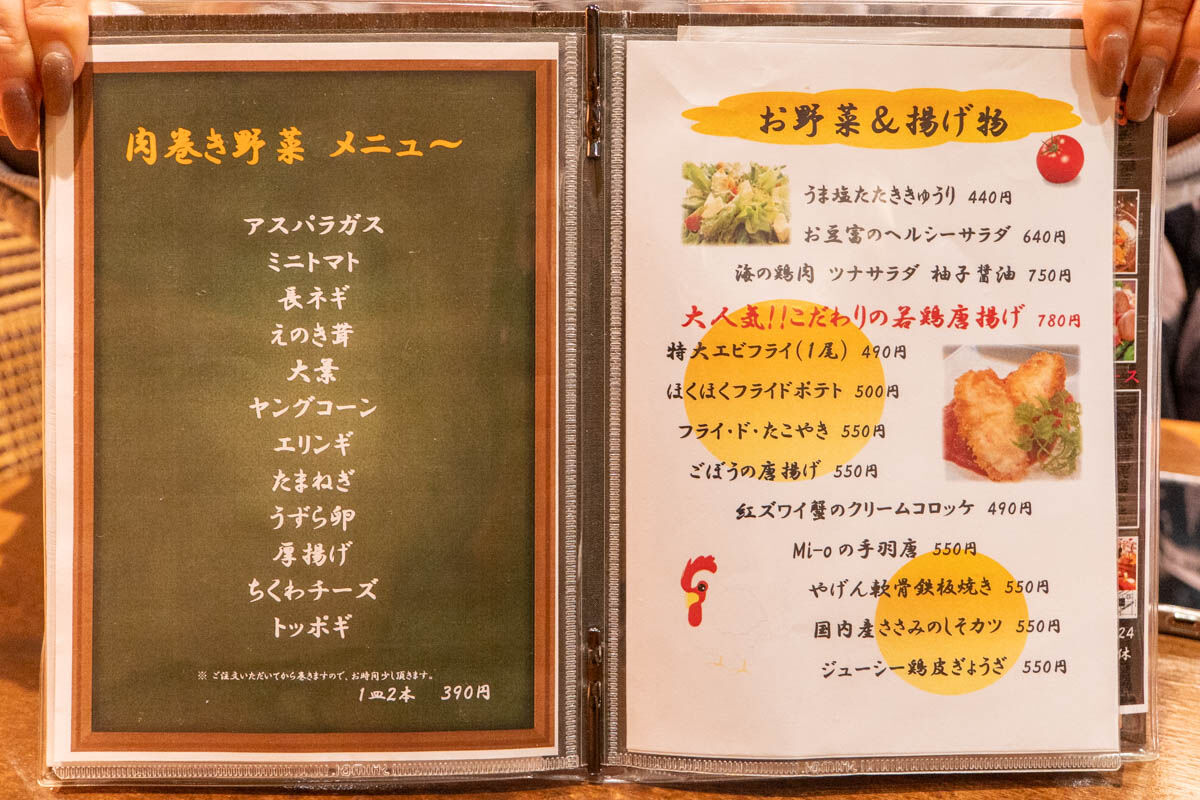 肉巻き野菜 メニュ〜
アスパラガス
ミニトマト
長ネギ
えのき茸
大葉
ヤングコーン
エリンギ
たまねぎ
うずら卵
厚揚げ
ちくわチーズ
トッポギ
※ ご注文いただいてから巻きますので、お時間少し頂きます。
1皿2本 390円
お野菜&揚げ物
うま塩たたききゅうり 440円
お豆富のヘルシーサラダ 640円
海の鶏肉 ツナサラダ 柚子醤油 750円
大人気!!こだわりの若鶏唐揚げ 780円
特大エビフライ(1尾) 490円
ほくほくフライドポテト 500円
フライ・ド・たこやき 550円
ごぼうの唐揚げ 550円
紅ズワイ蟹のクリームコロッケ 490円
Mi-oの手羽唐 550円
やげん軟骨鉄板焼き 550円
国内産ささみのしそカツ 550円
ジューシー鶏皮ぎょうざ 550円
ス
24
休